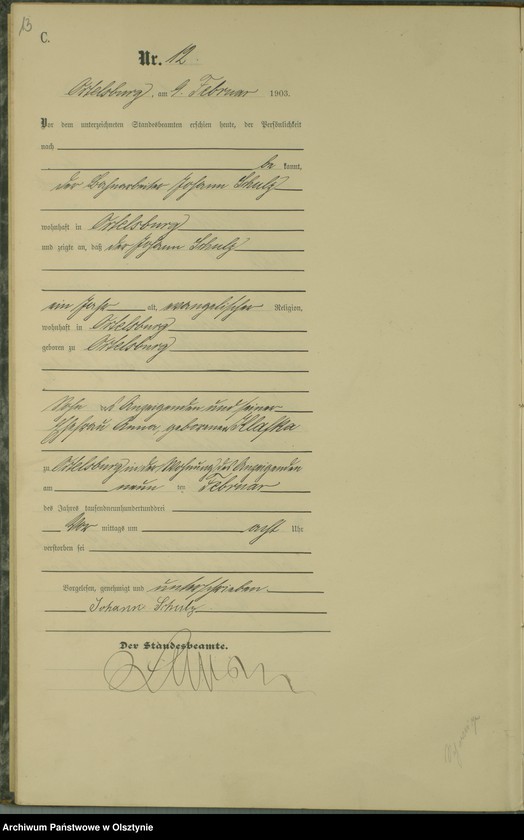 13
C.
Nr. 12.
Ortelsburg, am 9. Februar 1903.
Vor dem unterzeichneten Standesbeamten erschien heute, der Persönlichkeit
nach
be kannt,
der Bahnarbeiter Johann Schulz
wohnhaft in Ortelsburg
und zeigte an, daß der Johann Schulz
ein Jahr alt, evangelischer Religion,
wohnhaft in Ortelsburg
geboren zu Ortelsburg
Sohn des Anzeigenden und seiner
Ehefrau Anna, geborenen Klaffka
zu Ortelsburg in der Wohnung des Anzeigenden
am neun ten Februar
des Jahres tausendneunhundertunddrei
Vor mittags um acht Uhr
verstorben sei
Vorgelesen, genehmigt und unterschrieben
Johann Schulz
Der Standesbeamte.
Archiwum Państwowe w Olsztynie